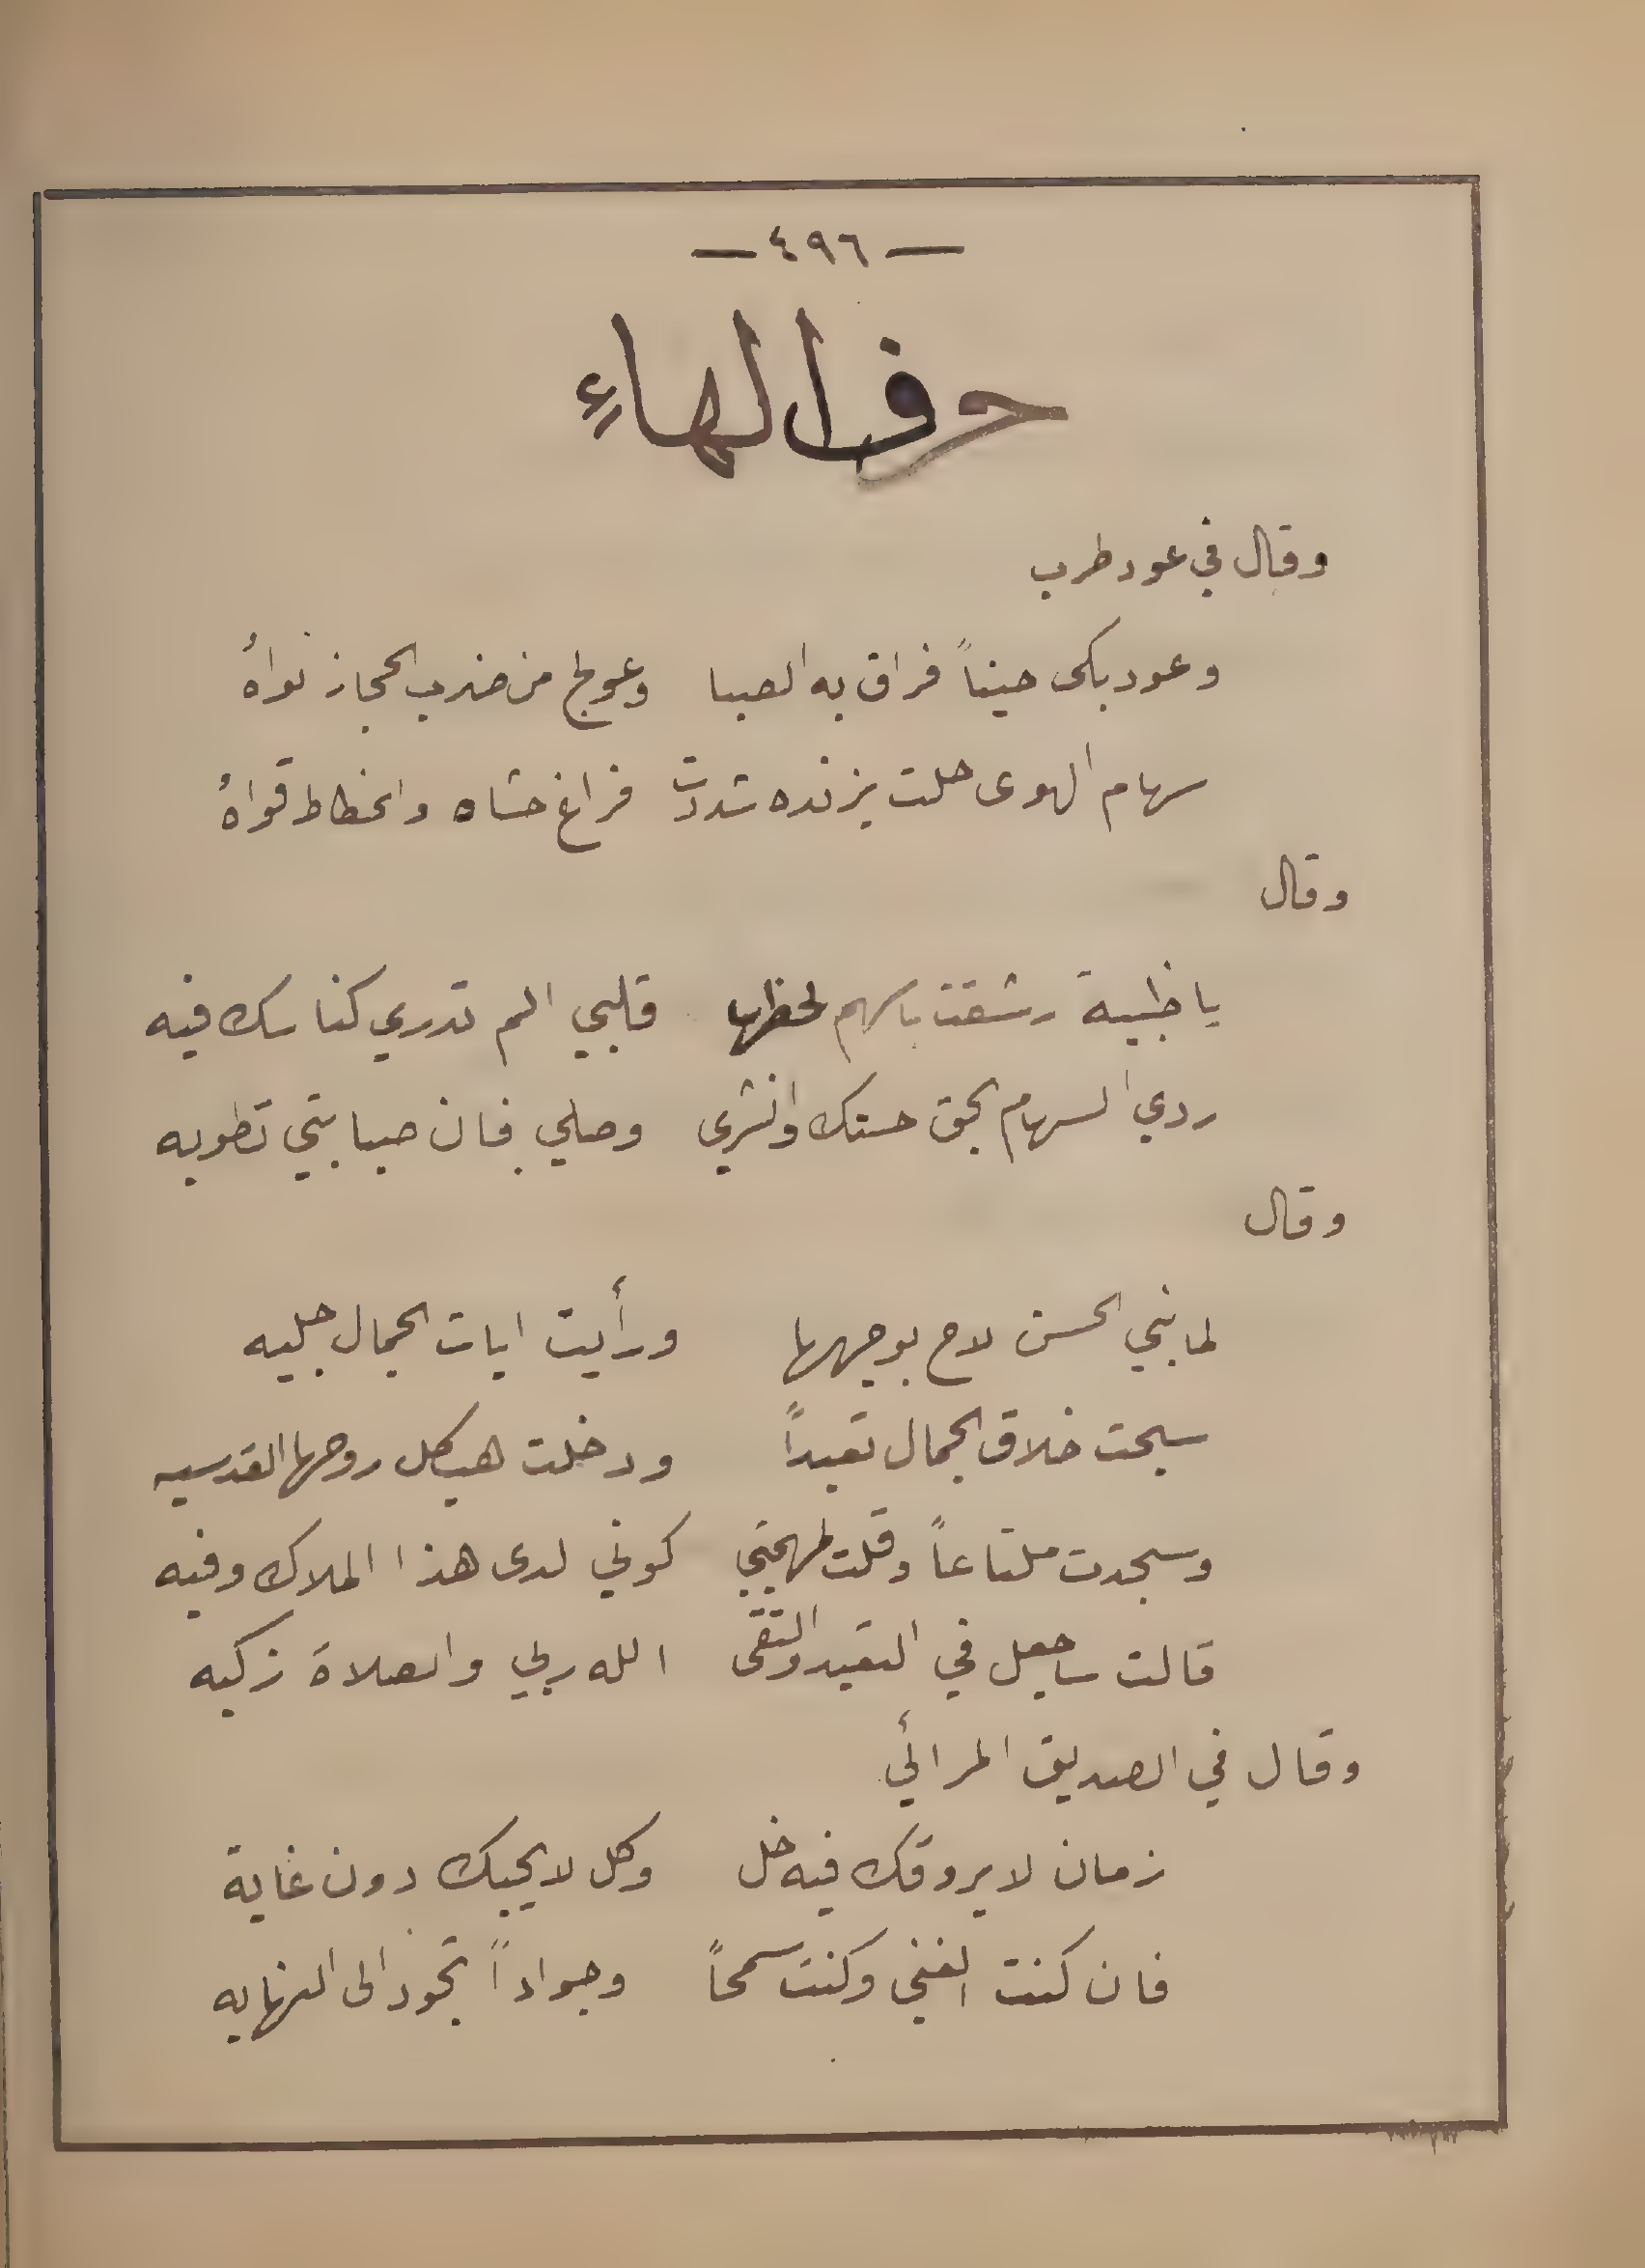 — ٤٩٦ —
حرف الهاءِ
وقال في عود طرب
وعود بكى حيناً فراق به الصبا وعولج من ضرب الحجاز نواهُ
سهام الهوى حلت بزنده شددت فراغ حشاه وانحطاط قواهُ
وقال
يا ظبية رشقت باسهم لحظها قلبي الم تدري كناسك فيه
ردي السهام بحق حسنك وانشري وصلي فان صبابتي تطويه
وقال
لما نبي الحسن لاح بوجهها ورأيت ايات الجمال جليه
سبحت خلاق الجمال تعبداً ودخلت هيكل روحها القدسيه
وسجدت ملتاعاً وقلت لمهجتي كوني لدى هذا الملاك وفيه
قالت ساجعل في التعبد والتقى الله ربي والصلاة زكيه
وقال في الصديق المرائي
زمان لا يروقك فيه خل وكل لا يحبك دون غاية
فان كنت الغني وكنت سمحاً وجواداً تجود الى النهايه